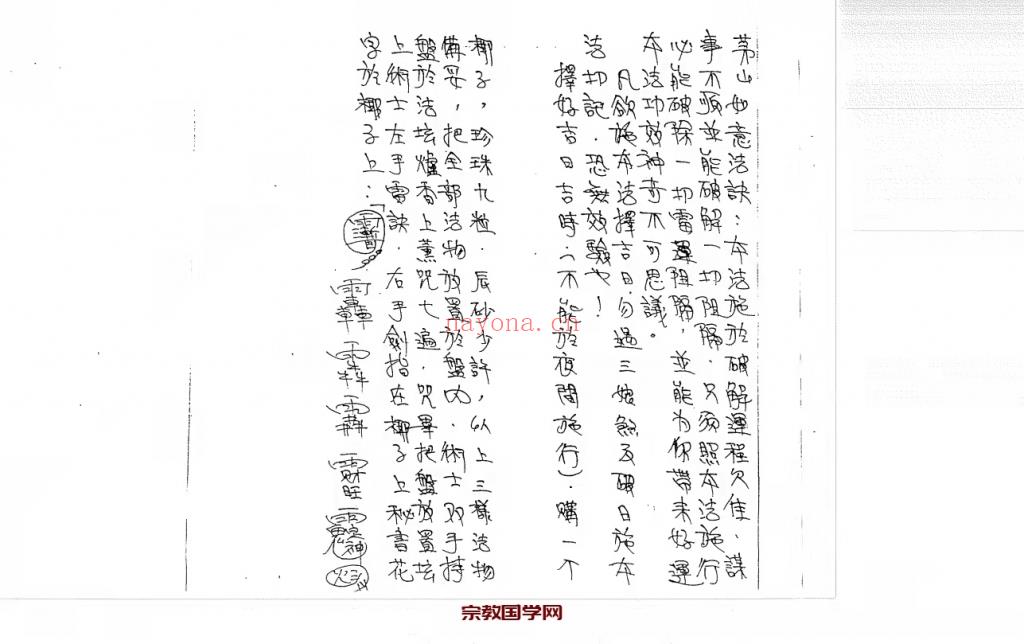 茅山如意法訣：本法施於破解運程欠佳．謀
事不順並能破解一切阻隔．只須照本法施行
必能破除一切雷運阻隔，並能为你帶来好運
本法功效神奇不可思議。
凡欲施本法擇吉日勿過三娘煞及破日施本
法切記．恐無效驗也！
擇好吉日吉時（不能於夜間施行）．購一个
椰子，珍珠九粒．辰砂少許，以上三樣法物
備妥，把全部法物放置於盤内．術士双手持
盤於法坛爐香上薰咒七遍．咒畢把盤放置坛
上術士左手雷訣．右手劍指在椰子上秘書花
字於椰子上：
nayona.cn
宗教国学网